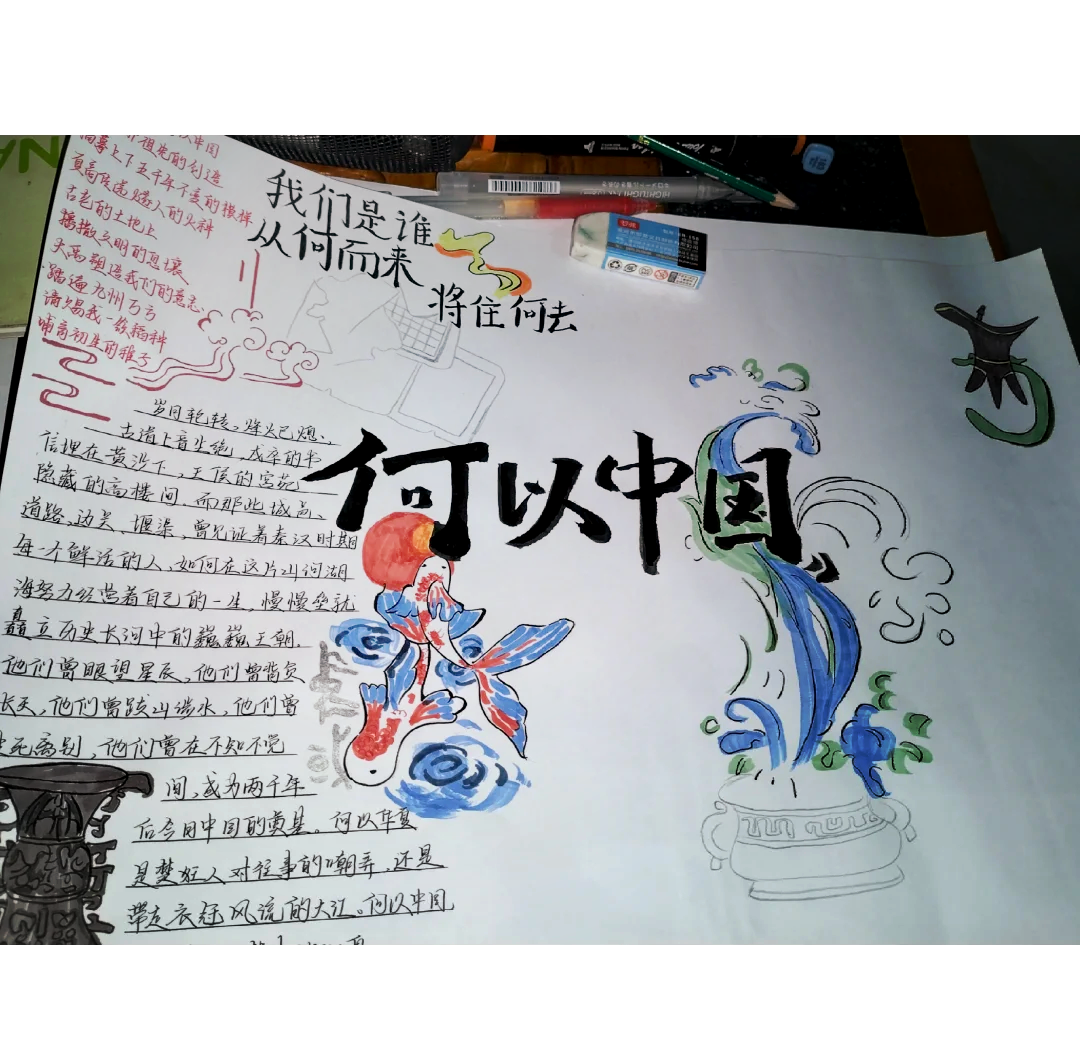 以中国
祖先的创造
尊上下五千年不变的模样
更高传递燧人的火种
古老的土地上
播撒文明的息壤
天高塑造我们的意志
踏遍九州万方
请赐我一颗稻种
哺育初生的稚子
我们是谁
从何而来
将住何去
何以中国
岁月轮转,烽火已熄、
古道上音尘绝,戍卒的书
信埋在黄沙下,王侯的宫苑
隐藏的高楼间,而那些城邑、
道路、边关、堰渠,曾见证着秦汉时期
每一个鲜活的人,如何在这片山河湖
海努力经营着自己的一生,慢慢垒就
矗立历史长河中的巍巍王朝.
他们曾眼望星辰,他们曾背负
长天,他们曾跋山涉水,他们曾
生死离别,他们曾在不知不觉
间,成为两千年
后今日中国的奠基。何以华夏
是楚狂人对往事的嘲弄,还是
带走衣冠风流的大江。何以中国
HIGHLIGHT